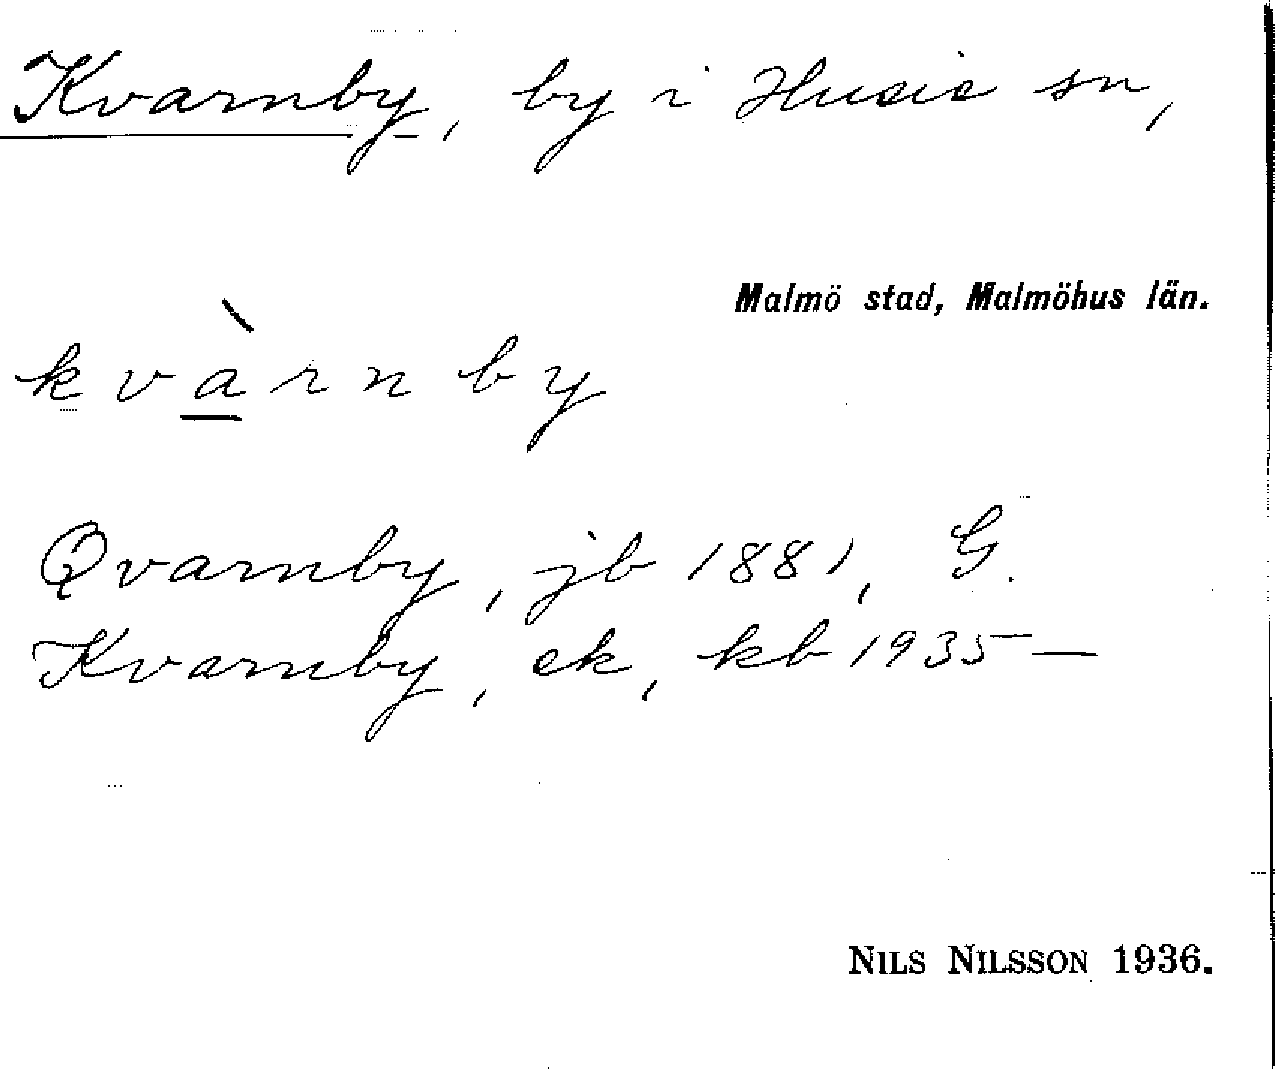 Kvarnby, by i Husie sn,
Malmö stad, Malmöhus län.
kvàrnby
Qvarnby, jb 1881, G.
Kvarnby, ek, kb 1935—
NILS NILSSON 1936.